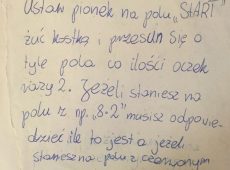 Ustaw pionek na polu „START”
żuć kostką i przesuń się o
tyle pola co ilości oczek
razy 2. Jeżeli staniesz na
polu z np. „8·2” musisz odpowie-
dzieć ile to jest a jeżeli
staniesz na polu z czerwonym